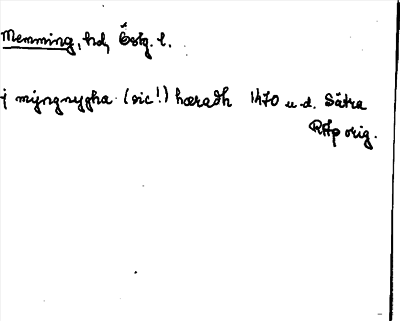 Memming, hd, Östg. l.
j myngnygha (sic!) hæradh 1470 u.d. Sätra
RAp orig.